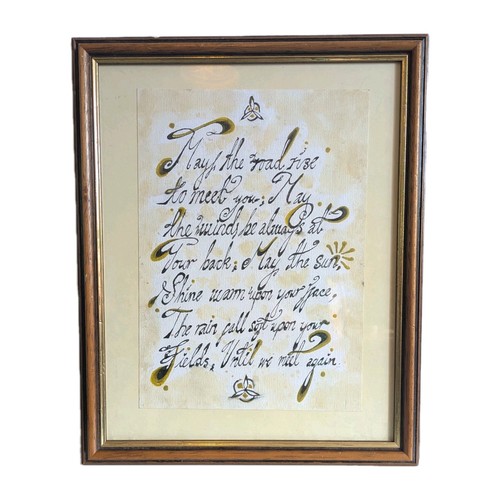 May, the road rise
to meet you; May
the winds be always at
Your back; May the sun,
Shine warm upon your face,
The rain fall soft upon your
Fields, Until we meet again.